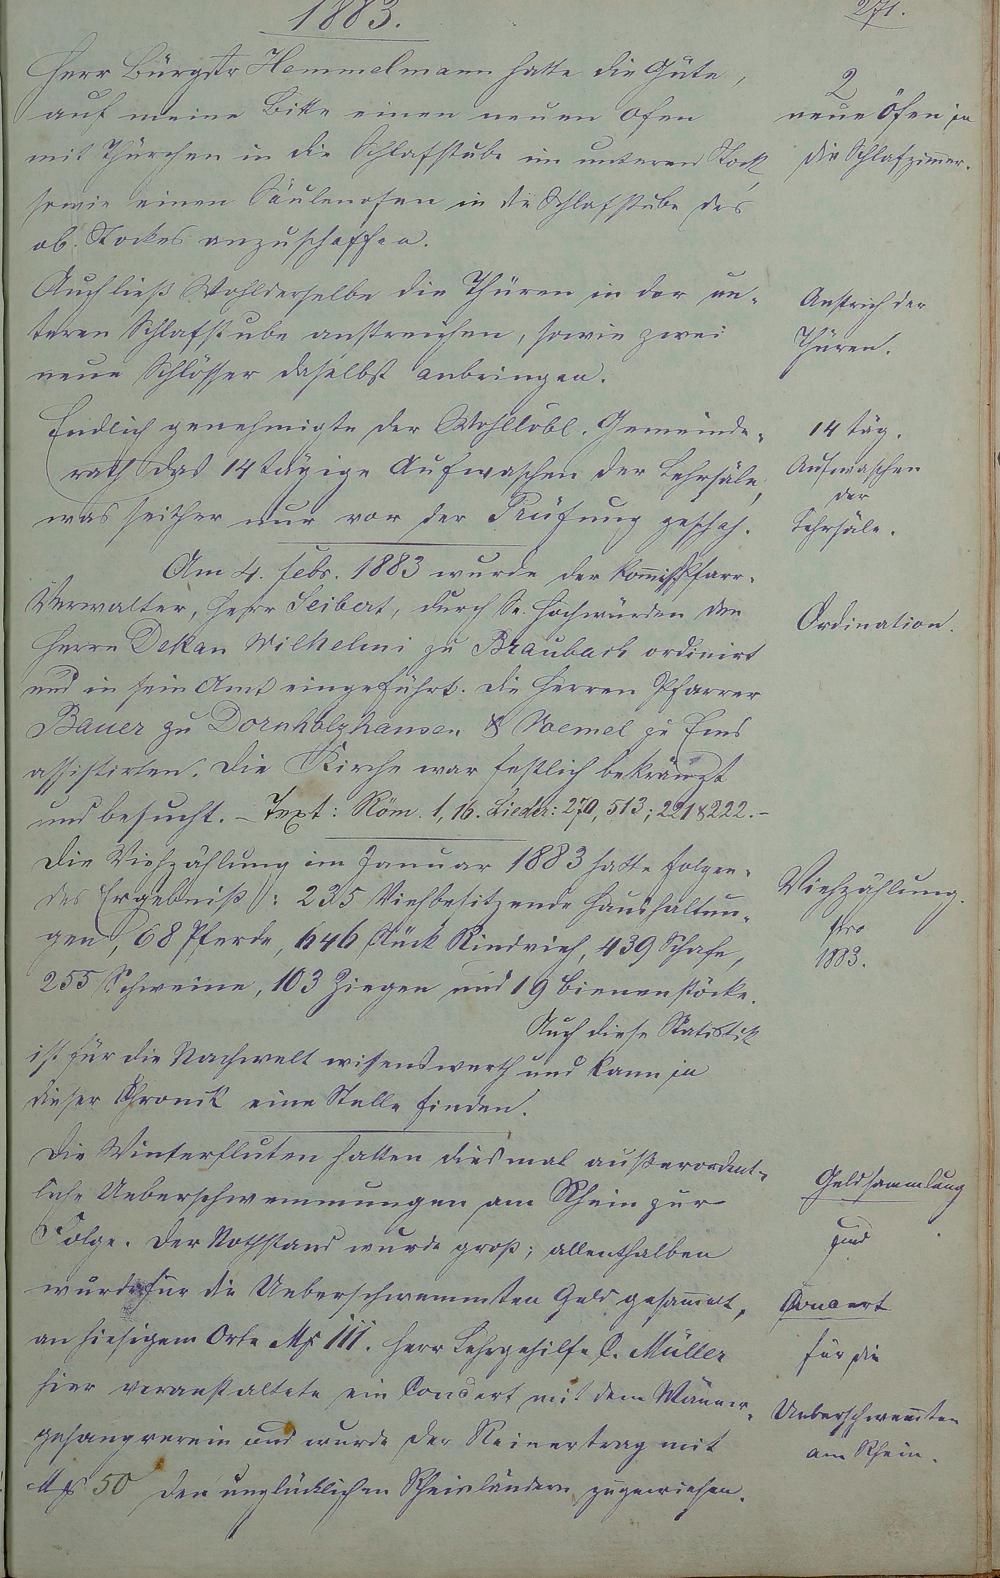 1883.
271.
Herr Bürgstr Hemmelmann hatte die Güte,
auf meine Bitte einen neuen Ofen
mit Thürchen in die Schlafstube im unteren Stock,
sowie einen Säulenofen in die Schlafstube des
ob. Stockes anzuschaffen.
2
neue Öfen in
die Schlafzimmer.
Auch ließ Wohlderselbe die Thüren in der un-
teren Schlafstube anstreichen, sowie zwei
neue Schlösser daselbst anbringen.
Anstrich der
Thüren.
Endlich genehmigte der Wohllöbl. Gemeinde-
rath das 14 tägige Aufwaschen der Lehrsäle,
was seither nur vor der Prüfung geschah.
14 täg.
Aufwaschen
der
Lehrsäle.
Am 4. Febr. 1883 wurde der Kommiss. Pfarr-
Verwalter, Herr Seibert, durch Se. Hochwürden den
Herrn Dekan Wilhelmi zu Braubach ordinirt
und in sein Amt eingeführt. Die Herren Pfarrer
Bauer zu Dornholzhausen & Vömel zu Ems
assistirten. Die Kirche war festlich bekränzt
und besucht. – Text: Röm. 1,16. Lieder: 270, 513; 221 & 222. –
Ordination.
Die Viehzählung im Januar 1883 hatte folgen-
des Ergebniß: 235 Viehbesitzende Haushaltun-
gen, 68 Pferde, 646 Stück Rindvieh, 439 Schafe,
255 Schweine, 103 Ziegen und 19 Bienenstöcke.
Auch diese Statistik
ist für die Nachwelt wissenswerth und kann in
dieser Chronik eine Stelle finden.
Viehzählung.
pro
1883.
Die Winterfluten hatten diesmal außerordent-
liche Ueberschwemmungen am Rhein zur
Folge. Der Nothstand wurde groß; allenthalben
wurde für die Ueberschwemmten Geld gesammelt,
an hiesigem Orte Mk 111. Herr Lehrgehilfe C. Müller
hier veranstaltete ein Concert mit dem Männer-
gesangverein und wurde der Reinertrag mit
Mk 50 den unglücklichen Rheinländern zugewiesen.
Geldsammlung
und
Concert
für die
Ueberschwemmten
am Rhein.